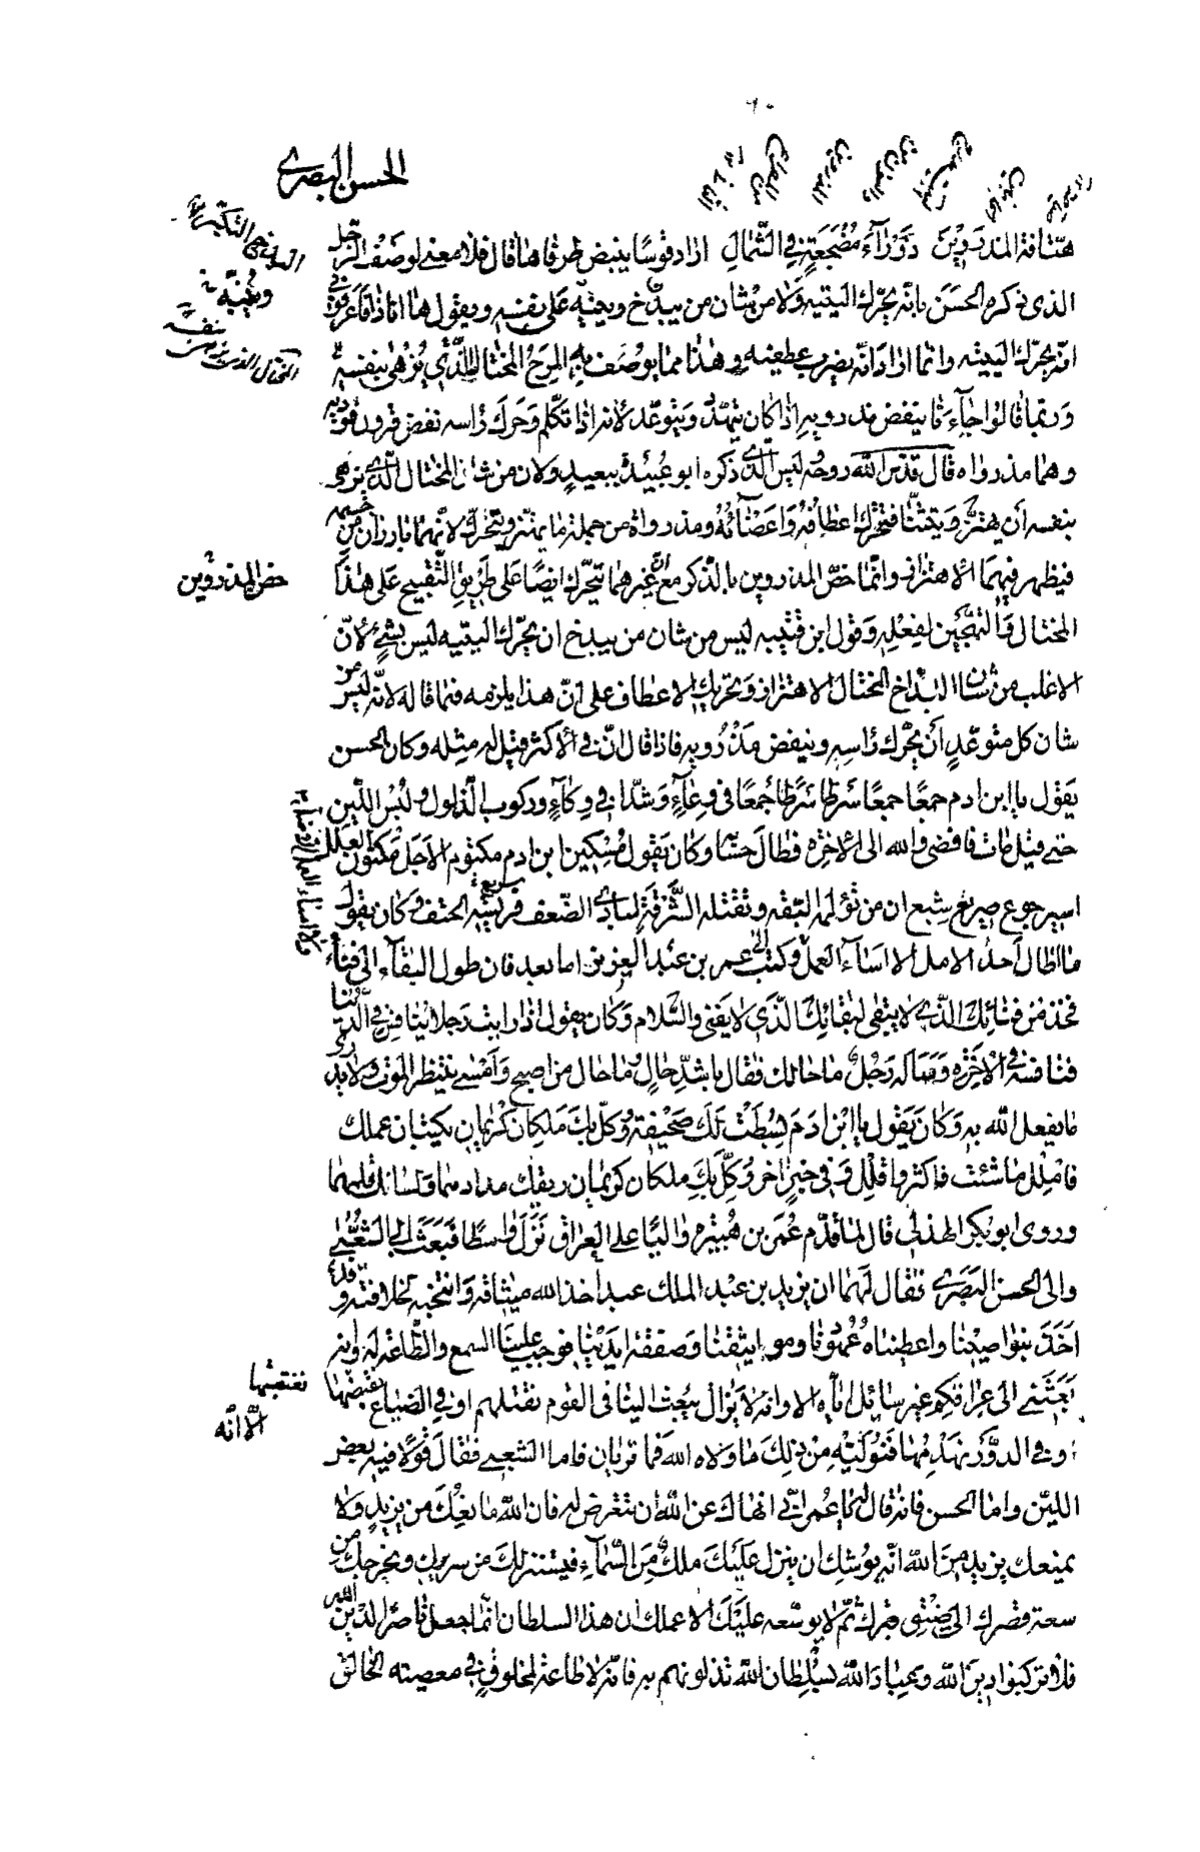 الحسن البصري
هتافة المذروين زوراء مضجعة في الشمال اراد قوسا ينبض طرفاها قال فلا معنى لوصف الرجل
الذي ذكره الحسن بانه يحرك اليتيه ولا من شان من يبذخ وينبه على نفسه ويقول ها انا ذا فاعرفوني
انه يحرك اليتيه وانما اراد انه يضرب عطفيه وهذا مما يوصف به المرح المختال الذي يزهى بنفسه
وربما قالوا جاء فا ينفض مذرويه اذا كان يتهدد ويتوعد لانه اذا تكلم وحرك راسه نفض قرون فوديه
وهما مذرواه قال قدس الله روحه ليس الذي ذكره ابو عبيدة ببعيد ولان من شان المختال الذي يزهى
بنفسه أن يهتز ويتثنا فتتحرك اعطافه واعضائه ومذرواه من جملة ما يهتز ويتحرك لانهما بارزان من جسمه
فيظهر فيهما الاهتزاز وانما خص المذروين بالذكر مع أن غيرهما يتحرك ايضا على طريق التقبيح على هذا
المختال والتهجين لفعله وقول ابن قتيبه ليس من شان من يبذخ ان يحرك اليتيه ليس بشئ لأن
الاغلب من شان البذاخ المختال الاهتزاز وتحريك الاعطاف على ان هذا يلزمه فيما قاله لانه ليس من
شان كل متوعد أن يحرك راسه وينفض مذرويه فاذا قال ان في الأكثر قيل له مثله وكان الحسن
يقول يا ابن ادم جمعا جمعا سرطا سرطا جمعا في وعاء وشدا في وكاء وركوب الذلول ولبس اللين
حتى قيل مات فافضى والله الى الاخرة فطال حسابه وكان يقول مسكين ابن ادم مكتوم الاجل مكنون العلل
اسير جوع صريع شبع ان من تؤلمه البقه وتقتله الشرقة لبادي الضعف فريسة الحتف وكان يقول
ما اطال أحد الامل الا اساء العمل وكتب الى عمر بن عبد العزيز اما بعد فان طول البقاء الى فناء
فخذ من فنائك الذي لا يبقى لبقائك الذي لا يفنى والسلام وكان يقول اذا رايت رجلا ينافس في الدنيا
فنافسه في الاخرة وساله رجل ما حالك فقال باشد حال ما حال من اصبح وأمسى ينتظر الموت ولا يدري
ما يفعل الله به وكان يقول يا ابن ادم بسطت لك صحيفة وكل بك ملكان كريمان يكتبان عملك
فاملل ما شئت فاكثر او قلل وفي خبر اخر وكل بك ملكان كريمان ريقك مدادهما ولسانك قلمهما
وروى ابو بكر الهذلي قال لما قدم عمر بن هبيرة واليا على العراق نزل واسطا فبعث الى الشعبي
والى الحسن البصري فقال لهما ان يزيد بن عبد الملك عبد اخذ الله ميثاقه وانتجبه لخلافته وقد
اخذ بنواصينا واعطيناه عهودنا ومواثيقنا وصفقة ايدينا فوجب علينا السمع والطاعة له وانه
بعثني الى عراقكم غير سائل اياه الا وانه لا يزال يبعث الينا في القوم نقتلهم او في الضياع نقبضها
او في الدور نهدمها فنوليه من ذلك ما ولاه الله فما تريان فاما الشعبي فقال قولا فيه بعض
اللين واما الحسن فانه قال له يا عمر اني انهاك عن الله ان تتعرض له فان الله مانعك من يزيد ولا
يمنعك يزيد من الله انه يوشك ان ينزل عليك ملك من السماء فيستنزلك من سريرك ويخرجك من
سعة قصرك الى ضيق قبرك ثم لا يوسعه عليك الا عملك ان هذا السلطان انما جعل ناصرا لدين الله
فلا تركبوا دين الله وعباد الله بسلطان الله تذلونهم به فانه لا طاعة لمخلوق في معصية الخالق
خص المذروين
نقتضها
الا انه